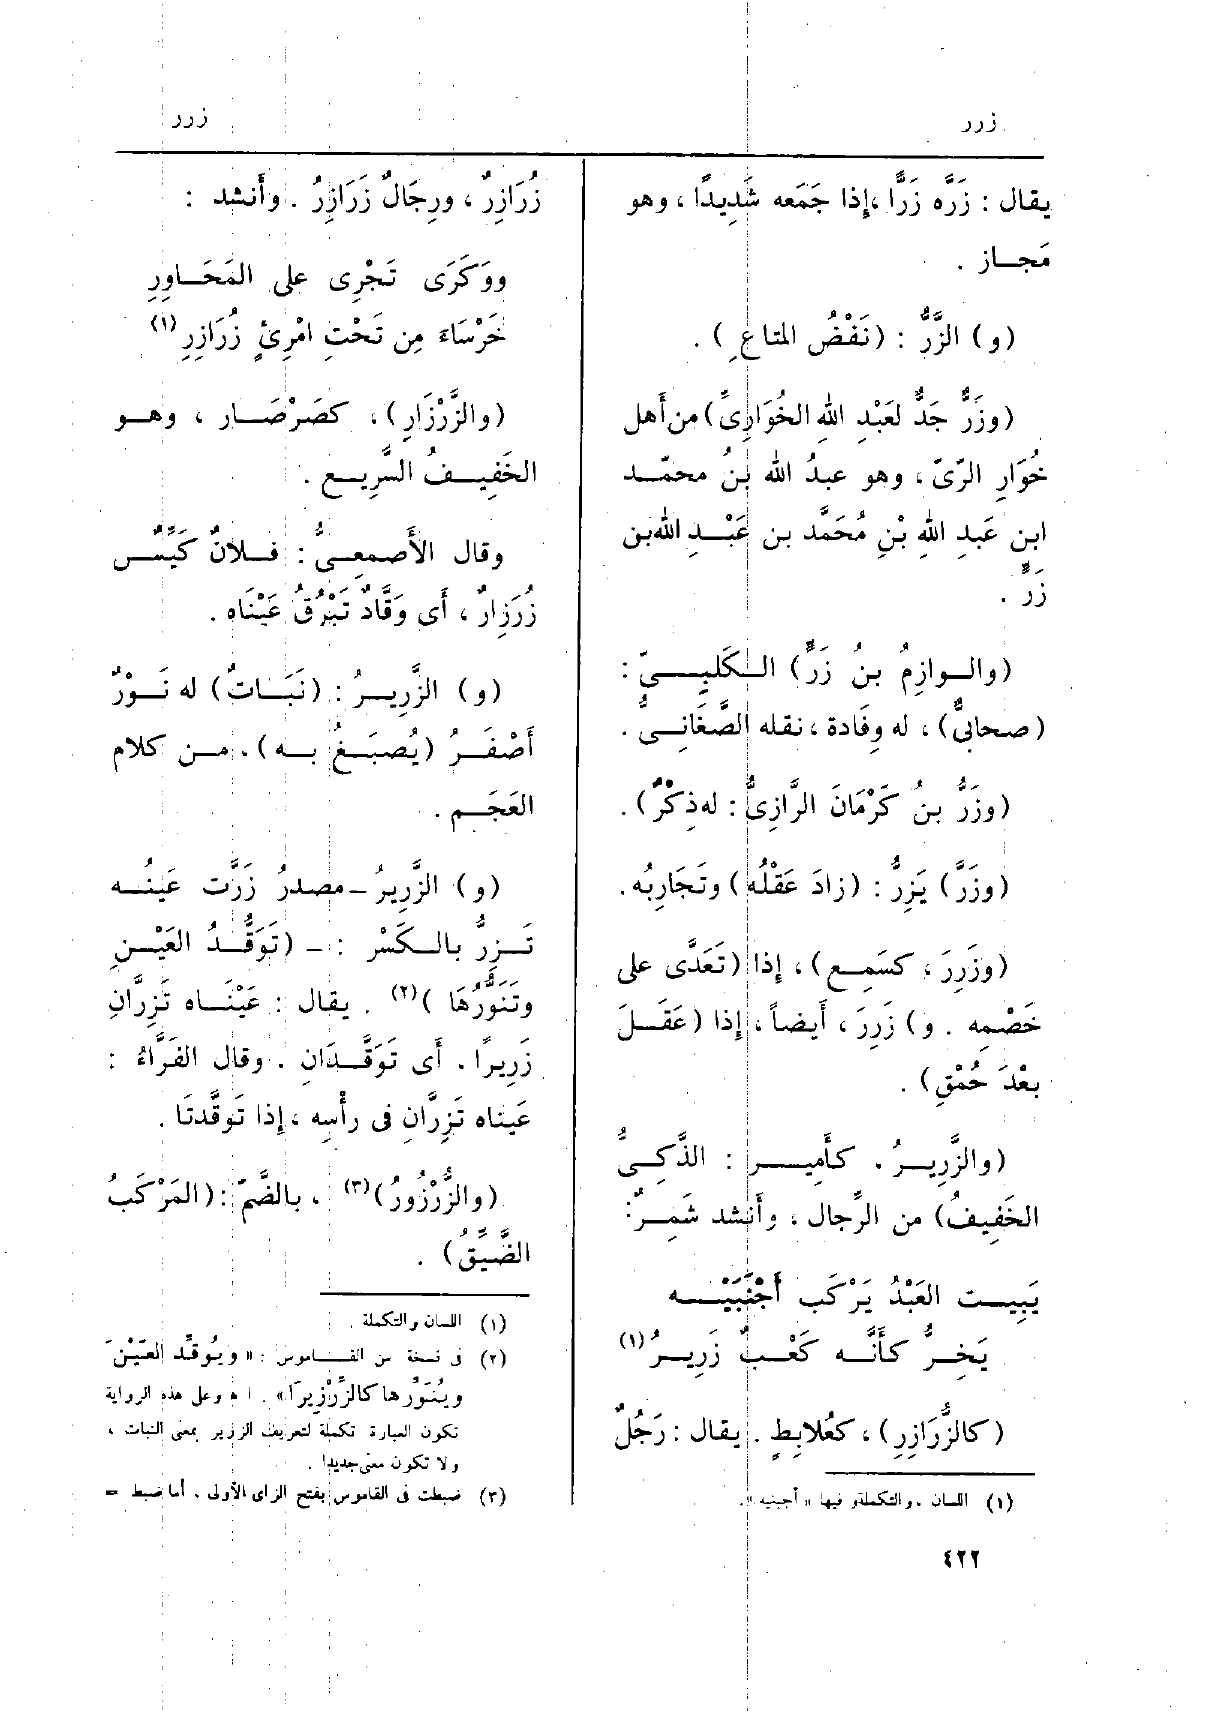 زرر
زرر
يقال : زَرَّه زَرًّا ، إذا جَمَعه شَدِيدًا ، وهو
مَجــاز .
(و) الزَّرُّ : (نَفْضُ المتاعِ) .
(وزَرٌّ جَدٌّ لعَبْدِ الله الخُوَارِىِّ) من أَهل
خُوَارِ الرّىّ ، وهو عبدُ الله بنُ محمّــد
ابن عَبدِ اللهِ بْنِ مُحَمَّد بن عَبْــدِ الله بن
زَرٍّ .
(والــوازِمُ بنُ زَرٍّ) الــكَلبِـــىّ :
(صحابىٌّ) ، له وِفَادة ، نقله الصَّغانِــىُّ .
(وزَرُّ بنُ كَرْمَانَ الرَّازِىُّ : له ذِكْرٌ) .
(وزَرَّ) يَزِرُّ : (زادَ عَقْلُه) وتَجَارِبُه .
(وزَرِرَ ، كسَمِــع) ، إذا (تَعَدَّى على
خَصْمِه . و) زَرِرَ ، أَيضاً ، إذا (عَقَــلَ
بعْدَ حُمْقٍ) .
(والزَّرِيــرُ ، كأَمِيـــر : الذَّكِــىُّ
الخَفِيفُ) من الرِّجال ، وأَنشد شَمِــرٌ :
يَبِيــت العَبْدُ يَرْكَب أَجْنَبَيْــه
يَخِــرُّ كأَنَّــه كَعْبٌ زَرِيــرُ (١)
(كالزُّرَازِرِ) ، كعُلابِطٍ . يقال : رَجُلٌ
(١) اللسان ، والتكملة وفيها « أجنبه » .
زُرَازِرٌ ، ورِجَالٌ زَرَازِرُ . وأَنشد :
ووَكَرَى تَجْرِى على المَحَــاوِرِ
خَرْسَاءَ مِن تَحْتِ امْرِئٍ زُرَازِرِ (١)
(والزَّرْزَارِ) ، كصَرْصَــار ، وهــو
الخَفِيــفُ السَّرِيــع .
وقال الأَصمعــىُّ : فــلانٌ كَيِّــس
زُرَزارٌ ، أَى وَقَّادٌ تَبْرُقُ عَيْنَاه .
(و) الزَّرِيــرُ : (نَبَــاتٌ) له نَــوْرٌ
أَصْفَــرُ (يُصبَــغُ بــه) . مــن كلام
العَجَــم .
(و) الزَّرِيرُ ــ مصدرُ زَرَّت عَينُــه
تَــزِرُّ بالــكَسْر : ــ (تَوَقُّــدُ العَيْــنِ
وتَنَوُّرُها ) (٢) . يقال : عَيْنَــاه تَزِرَّانِ
زَرِيرًا . أَى تَوَقَّــدَانِ . وقال الفَرَّاءُ :
عَيناه تَزِرَّانِ فى رأْسِه ، إذا تَوقَّدتَا .
(والزُّرْزُورُ) (٣) ، بالضَّمّ : (المَرْكَبُ
الضَّيِّقُ) .
(١) اللسان والتكملة .
(٢) فى نسخة من القــاموس : « ويُوقِّد العَيْنَ
ويُنَوِّرُها كالزِّرْزِيرَا » . ا ه وعلى هذه الرواية
تكون العبارة تكملة لتعريف الزرير بمعنى النبات ،
ولا تكون معنى جديدا .
(٣) ضبطت فى القاموس بفتح الزاى الأولى . أما ضبط =
٤٢٢